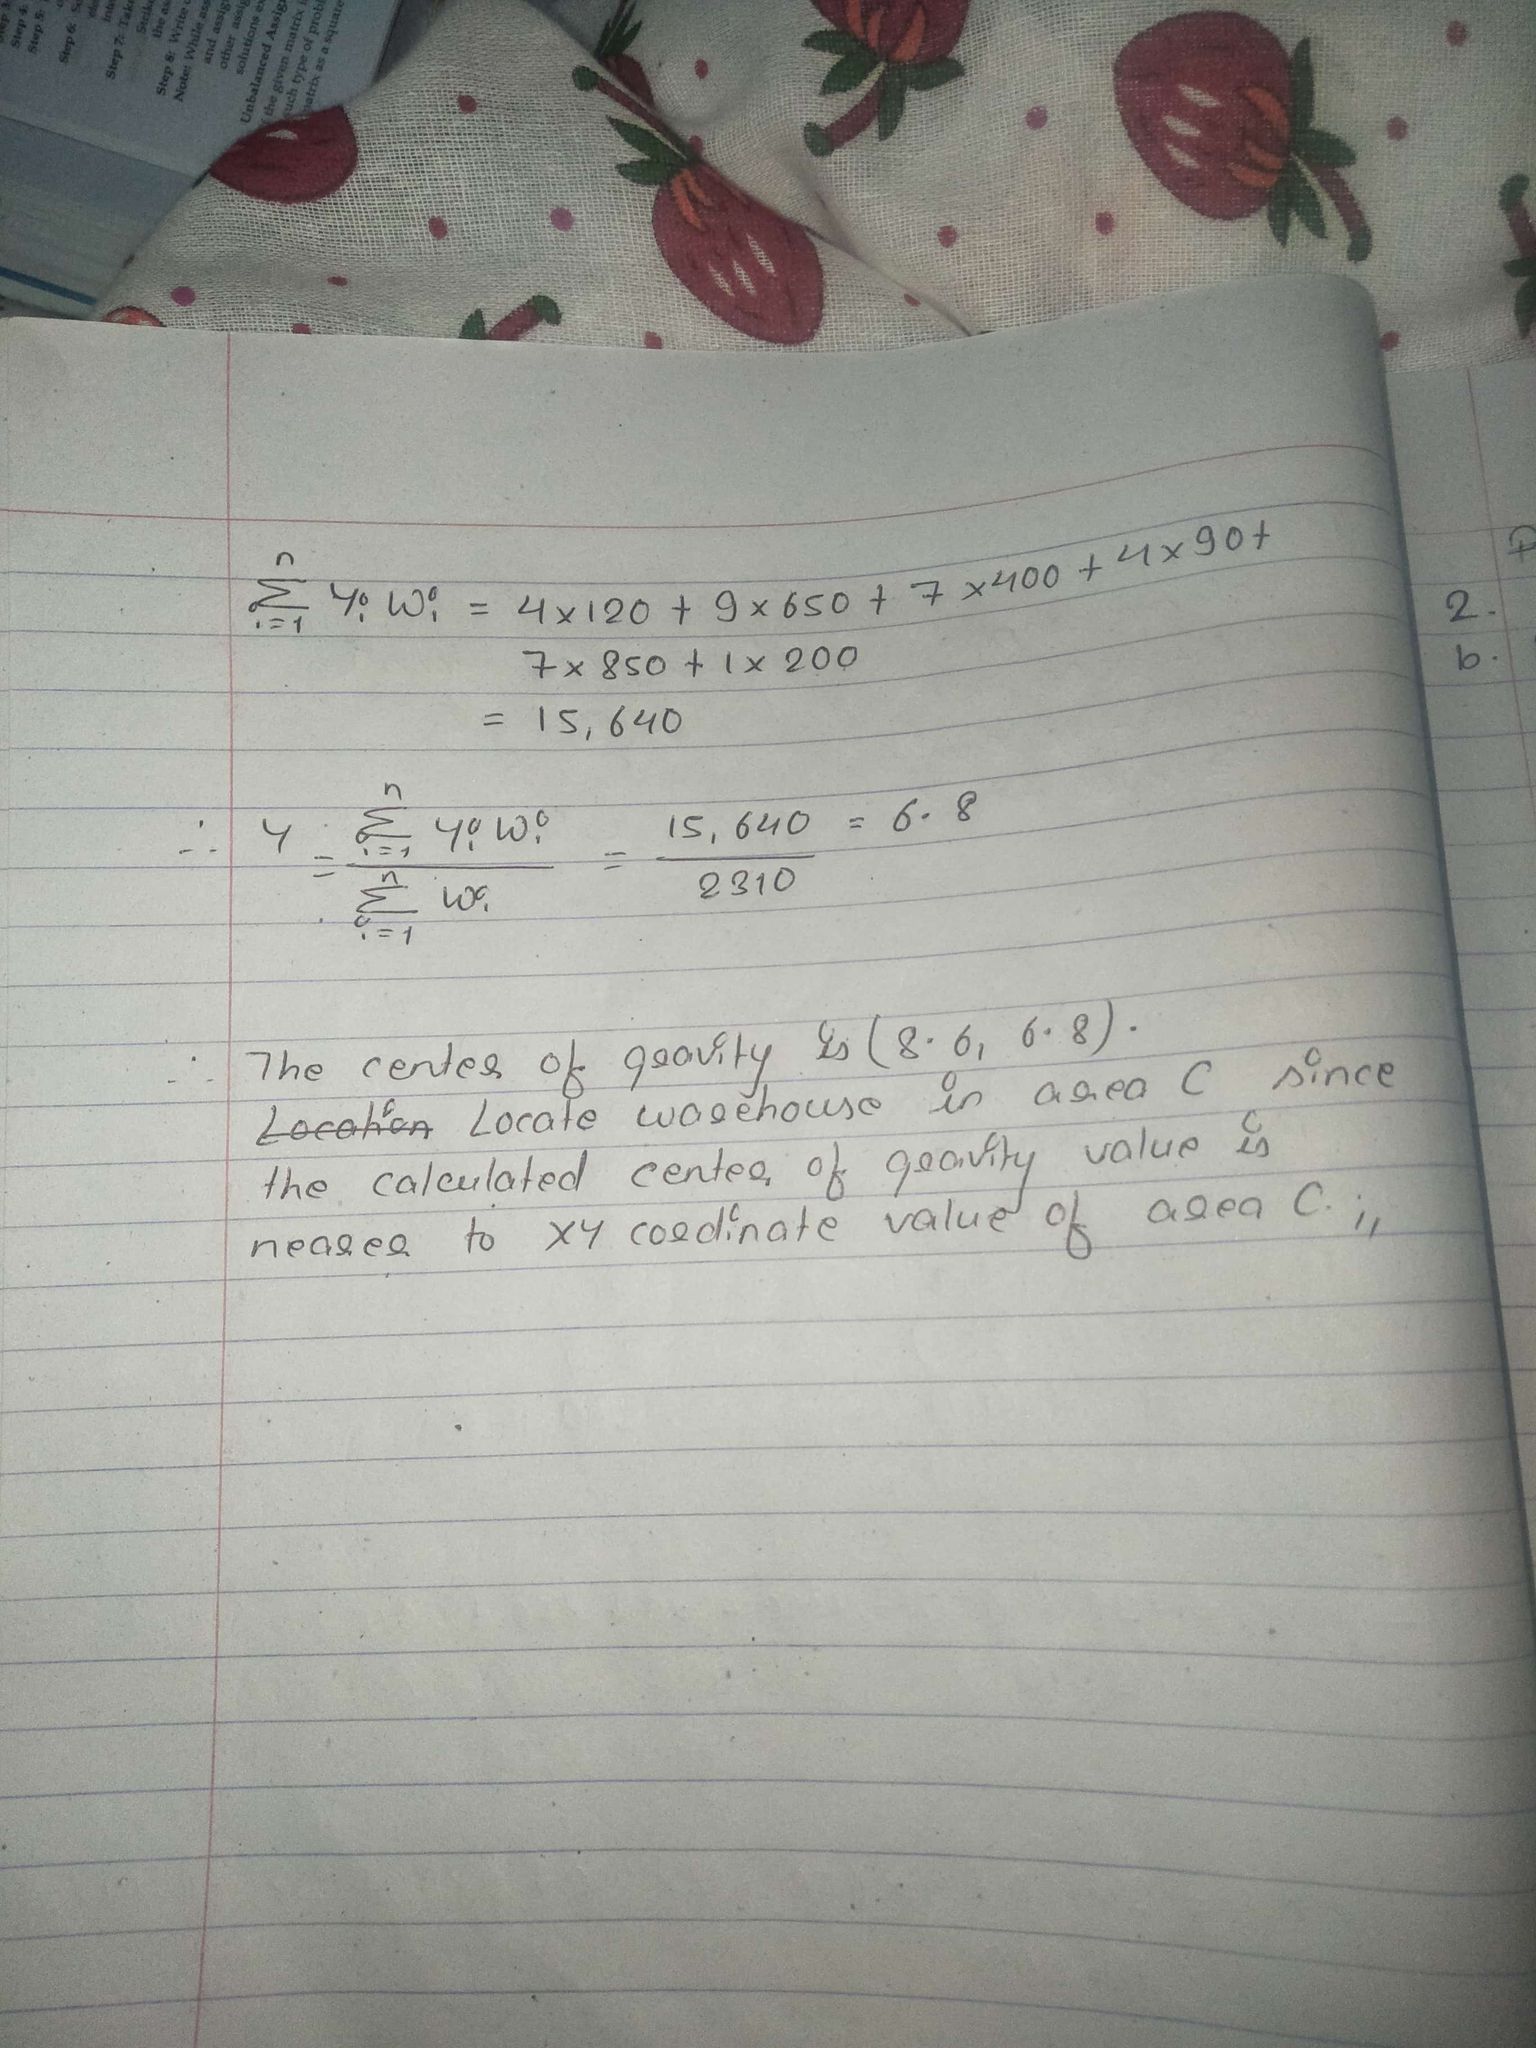 Step 4:
Step 5:
Step 6:
Step 7: Take
Step 8: Write
Note: While
and assig
other assig
solutions
Unbalanced Assig
the given matrix
such type of probl
matrix as a square
n
Σ Yi Wi = 4x120 + 9x650 + 7x400 + 4x90+
i=1
7x850 + 1x200
= 15,640
n
∴ Y = Σ Yi Wi = 15,640 = 6.8
i=1
n
Σ Wi 2310
i=1
∴ The center of gravity is (8.6, 6.8).
Location Locate warehouse in area C since
the calculated center of gravity value is
nearer to XY cordinate value of area C.
2.
b.